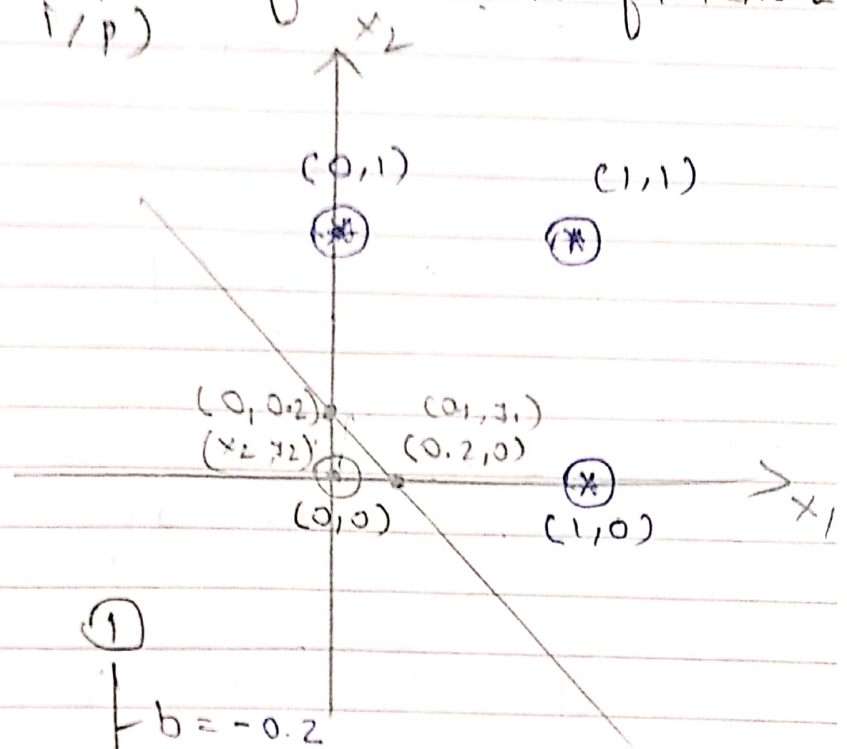 i/p)
x2
(0,1)
(1,1)
(0,0.2)
(x2 y2)
(0.2,0)
(0,0)
(1,0)
x1
1
b = -0.2